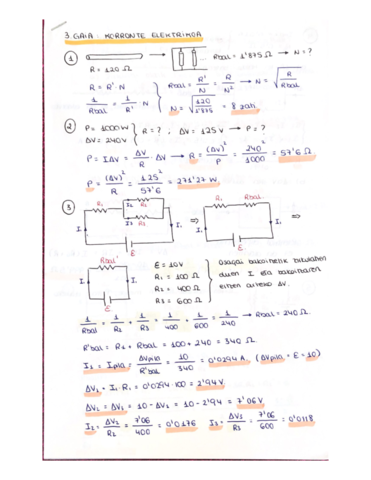 3. GAIA: KORRONTE ELEKTRIKOA
1 → Rbal = 1'875 Ω → N = ?
R = 120 Ω
R = R' · N
Rbal = R'/N = R/N² → N = √(R/Rbal)
1/Rbal = 1/R' · N
N = √(120/1'875) = 8 zati
2 P = 1000 W } R = ? ; ΔV = 125 V → P = ?
ΔV = 240 V
P = IΔV = ΔV/R · ΔV → R = (ΔV)²/P = 240²/1000 = 57'6 Ω
P = (ΔV)²/R = 125²/57'6 = 271'27 W
3 R1 I2 R2 I3 R3 I1 I1 E ⇒ R1 Rbal I1 I1 E ⇒
Rbal' I I E
E = 10 V
R1 = 100 Ω
R2 = 400 Ω
R3 = 600 Ω
Osagai bakoitzetik
duten I eta bakoitzaren
ΔV.
1/Rbal = 1/R2 + 1/R3 = 1/400 + 1/600 = 1/240 → Rbal = 240 Ω
R'bal = R1 + Rbal = 100 + 240 = 340 Ω.
I1 = Ipila = ΔVpila/R'bal = 10/340 = 0'0294 A. (ΔVpila = E = 10)
ΔV1 = I1 · R1 = 0'0294 · 100 = 2'94 V.
ΔV2 = ΔV3 = 10 - ΔV1 = 10 - 2'94 = 7'06 V.
I2 = ΔV2/R2 = 7'06/400 = 0'0176 I3 = ΔV3/R3 = 7'06/600 = 0'0118